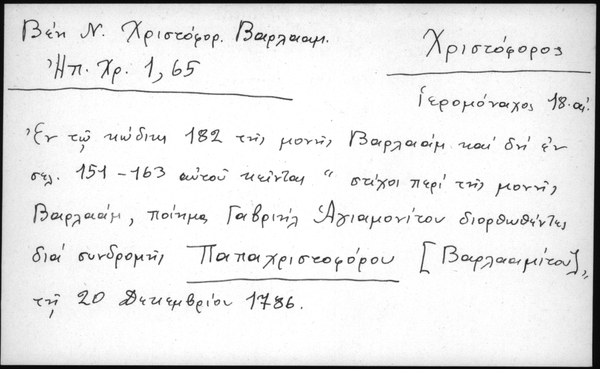 Βέη Ν. Χριστόφορ. Βαρλααμ.
Ἠπ. Χρ. 1, 65
Χριστόφορος
ἱερομόναχος 18. αἰ.
Ἐν τῷ κώδικι 182 τῆς μονῆς Βαρλαάμ καί δή ἐν
σελ. 151-163 αὐτοῦ κεῖνται "στίχοι περί τῆς μονῆς
Βαρλαάμ, ποίημα Γαβριήλ Ἁγιαμονίτου διορθωθέντες
διά συνδρομῆς Παπαχριστοφόρου [Βαρλααμίτου]„
τῇ 20 Δεκεμβρίου 1786.